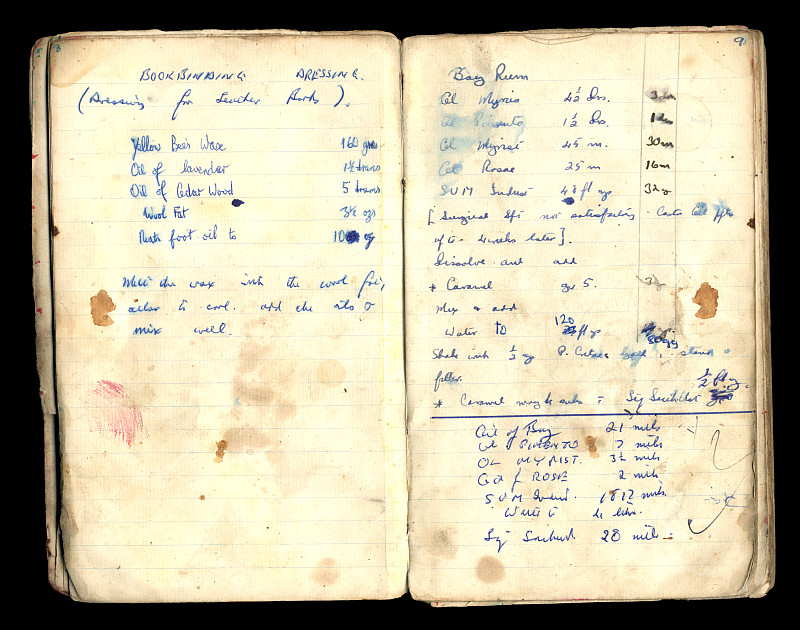 BOOKBINDING DRESSING.
(Dressing for Leather Books).
Yellow Bees Wax 160 grs
Oil of lavender 1½ drams
Oil of Cedar Wood 5 drams
Wool Fat 3½ ozs
Neats foot oil to 10 oz
Melt the wax with the wool fat,
allow to cool. add the oils &
mix well.
9
Bay Rum
Ol Myrcia 4½ Drs. 3 drs
Ol Pimento 1½ Drs. 1 drs
Ol Myrist 45 m. 30 m
Ol Rosae 25 m 16 m
SVM Indust 48 fl ozs 32 oz
[Surgical Spt not satisfactory
4 weeks later].
Dissolve and add
* Caramel gr 5.
Mix & add
Water to 120 fl ozs 80 ozs
Shake with ½ oz P. stand &
filter.
* Caramel may be subs = ½ fl oz
Oil of Bay 21 mils
Ol PIMENTO 7 mils
OL MYRIST. 3½ mils
Oil of ROSE 2 mils
SVM Indust. mils
Water to 4 litre.
28 mils